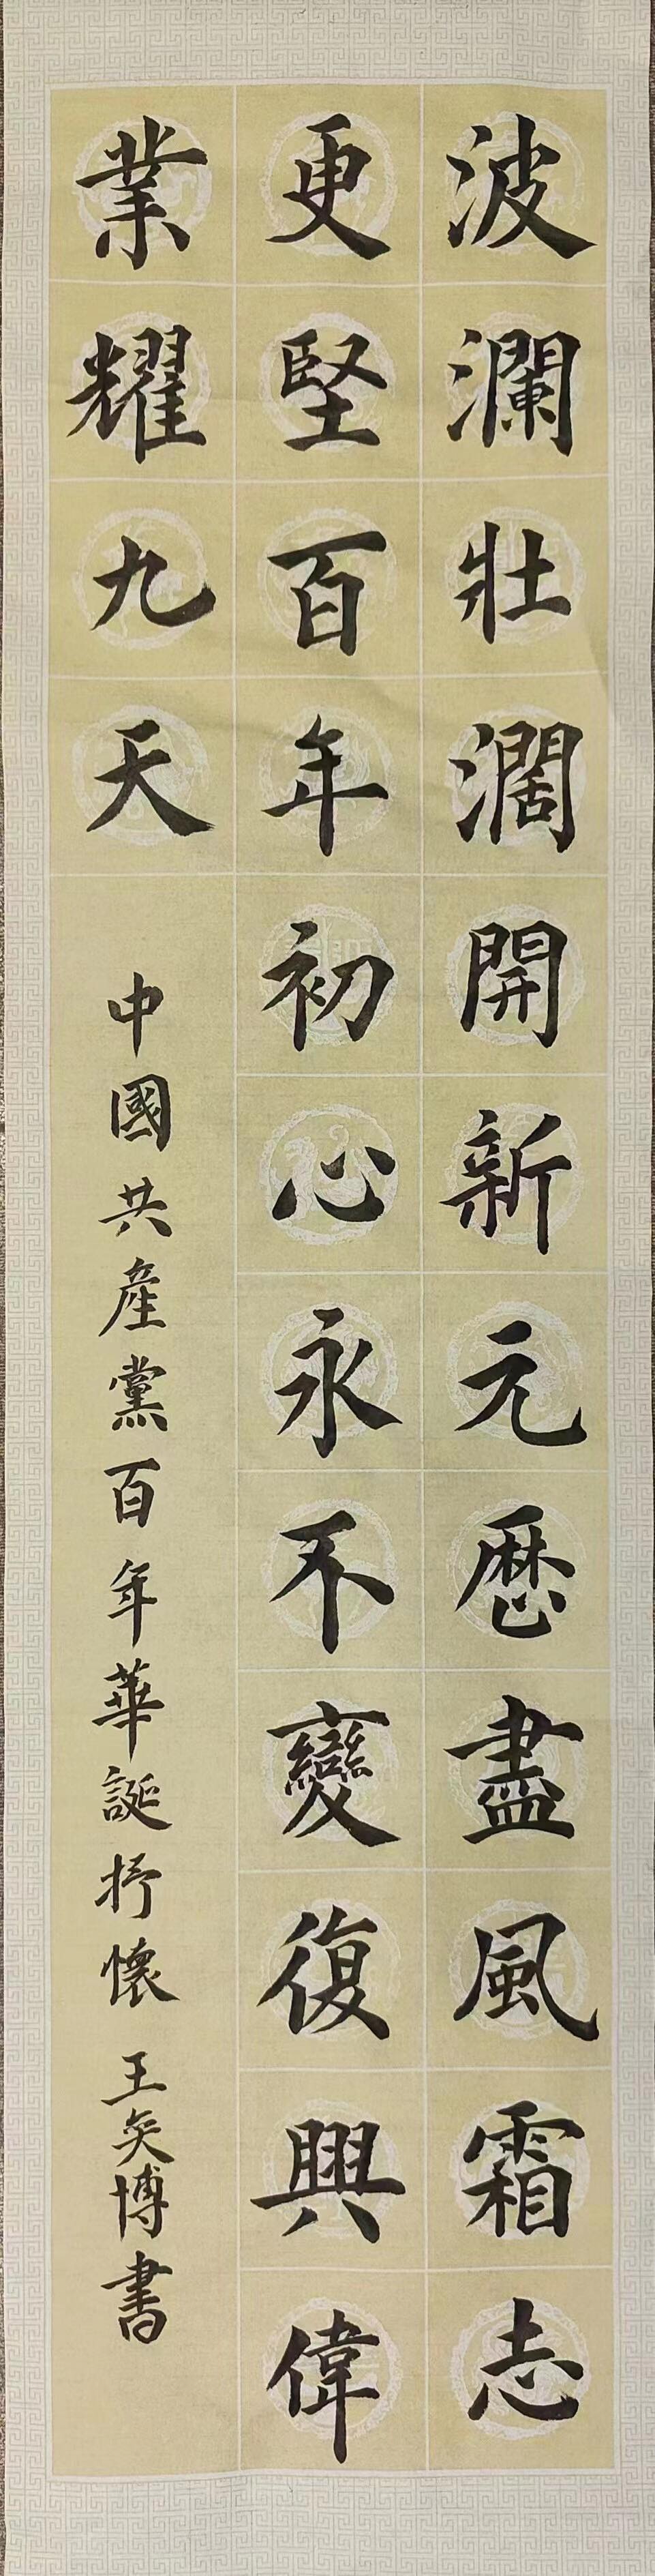 波瀾壯濶開新元歷盡風霜志
更堅百年初心永不變復興偉
業耀九天
中國共產黨百年華誕抒懷 王奕博書